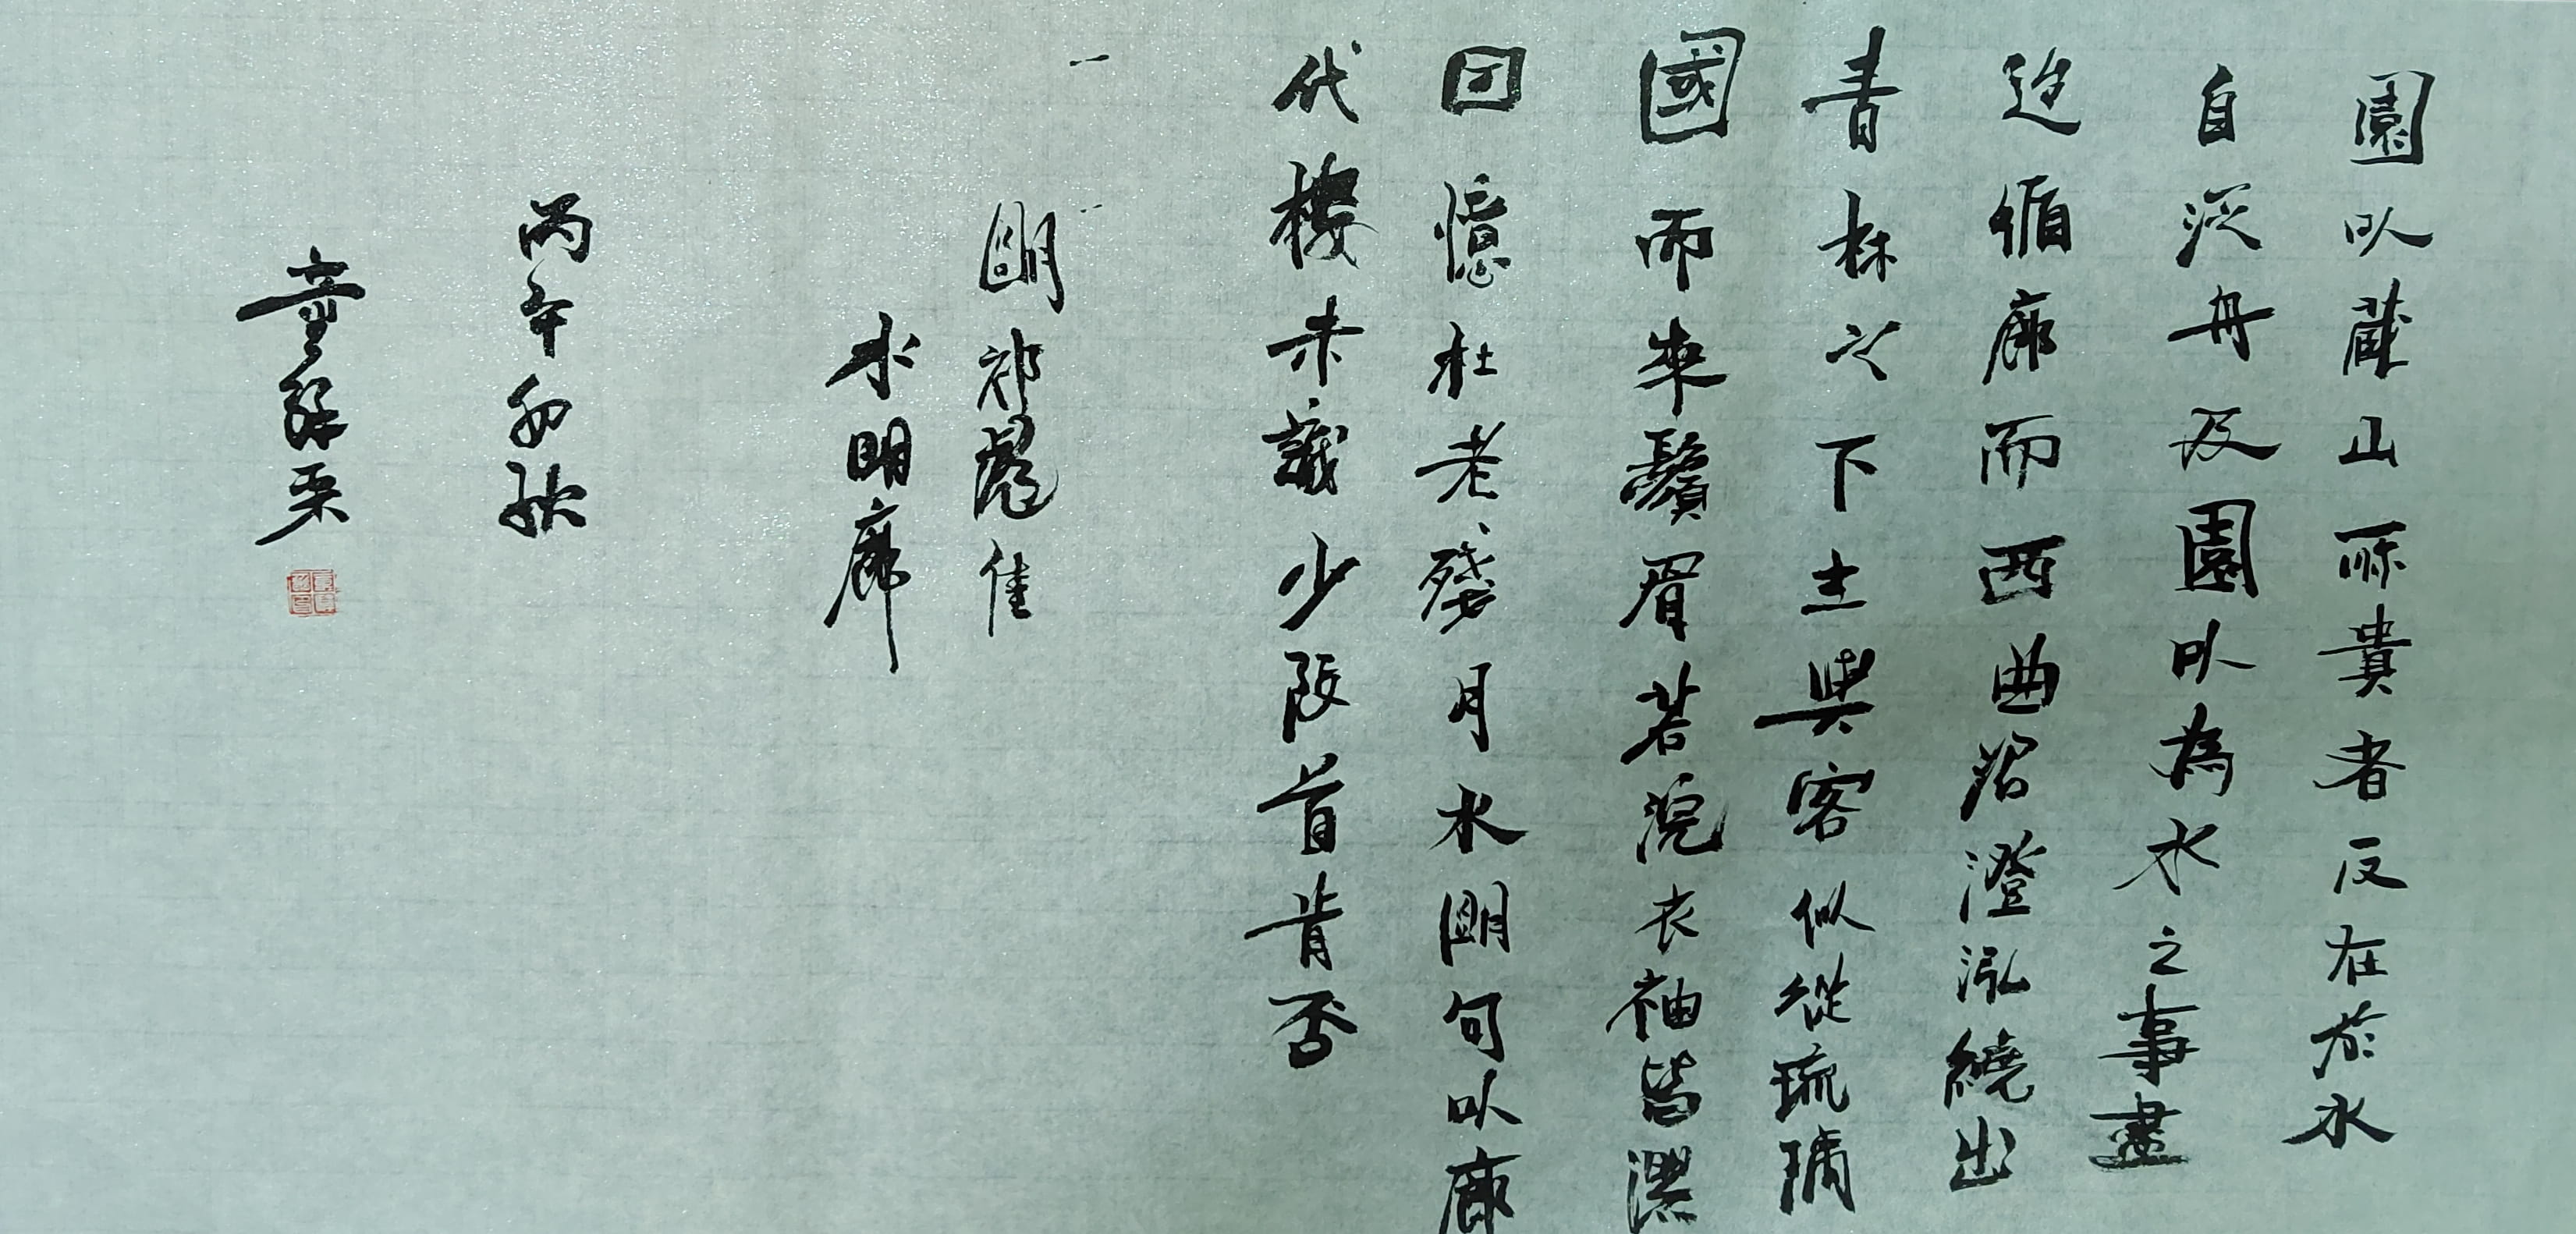 園以藏山所貴者反在於水
自泛舟及園以為水之事盡
迨循廊而西曲沼澄泓繞出
青林之下主與客似從琉璃
國而來鬚眉若浣衣袖皆濕
囙憶杜老殘月水明句以廊
代樓未識少陵首肯否
明祁彪佳
水明廊
丙午初秋
童